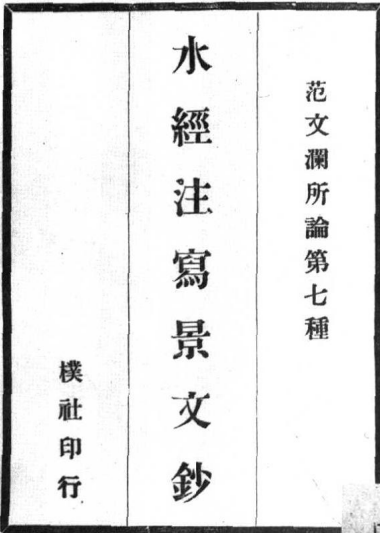 范文瀾所論第七種
水經注寫景文鈔
樸社印行